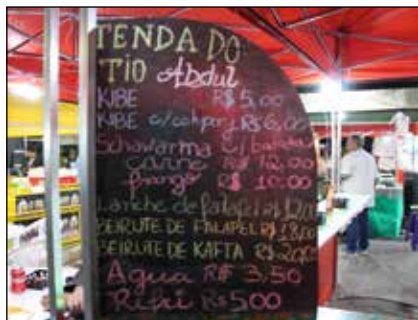 TENDA DO
TIO Abdul
KIBE R$ 5,00
KIBE c/ R$ 6,00
Schawarma c/ batata
carne R$ 12,00
frango R$ 10,00
Lanche de falafel R$ 12,00
BEIRUTE DE FALAFEL R$ 18,00
BEIRUTE DE KAFTA R$ 20,00
Agua R$ 3,50
Refri R$ 5,00